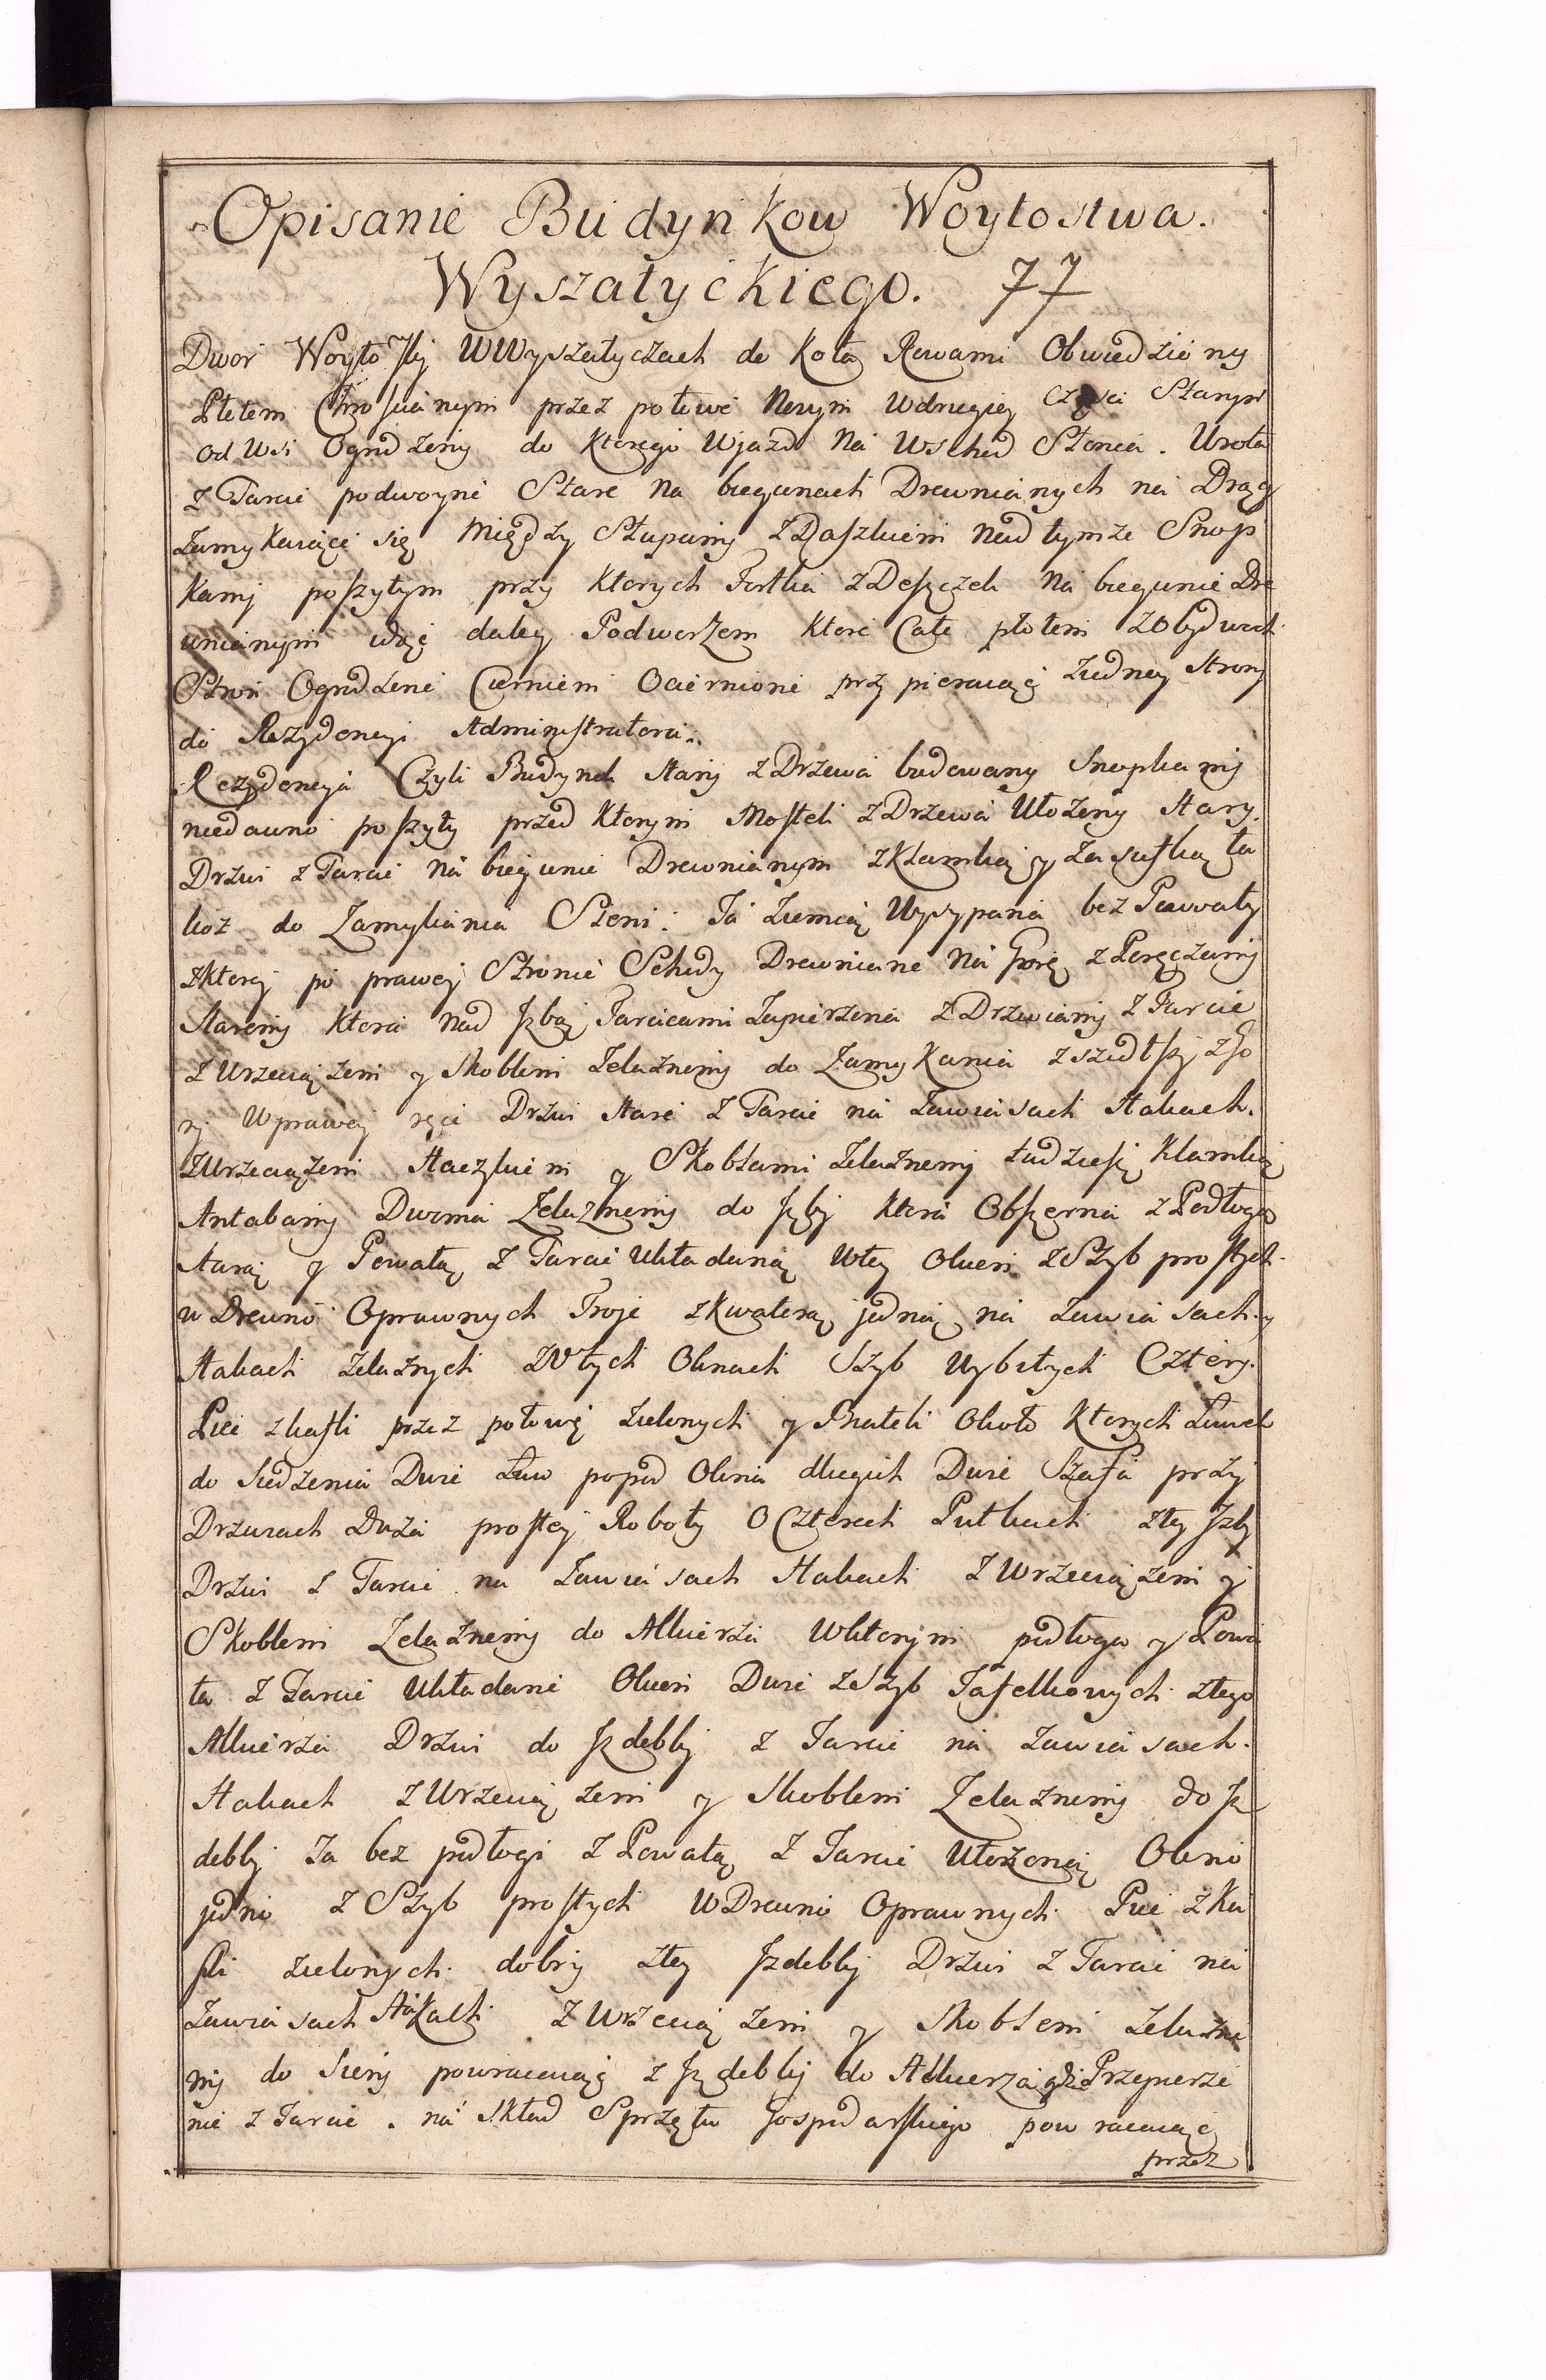 Opisanie Budynkow Woytostwa.
Wyszatyckiego. 77
Dwor Woyto Wyszatyczach do Koła Rowami Obwiedziony
Płotem Chrościanym przez połowe Nowym w drugiey części Starym
od Wsi Ogrodzony do ktorego Wjazd Na Wschod Słonca. Wrota
z Tarcic podwoyne Stare Na biegunach Drewnianych na Drąg
Zamykaiące się Między Słupamy z Daszkiem Nad tymże Snop
kamj poszytym przy ktorych Fortka z Deszczek Na biegunie Dre
wnianym idąc daley Podworzem ktore Całe płotem z Obydwoch
Stron Ogrodzone Cierniem Ociernione przypieraiąc z iedney Strony
do Rezydencyi Administratora.
Rezydencyja Czyli Budynek Stary z Drzewa budowany Snopkamy
niedawno poszyty przed ktorym Mostek z Drzewa Ułożony Stary
Drzwi z Tarcic Na biegunie Drewnianym z Klamką y Zasuwką ta
koż do Zamykania Sieni. Ta Ziemią Wysypana bez Powały
z ktorej po prawej Stronie Schody Drewniane Na Gorę z Poręczamy
Staremy ktora Nad Izbą Tarcicami Zapierzona z Drzwiamy z Tarcic
z Wrzeciążem y Skoblem Zelaznemy do Zamykania zszedłszy z Go
ry W prawej ręce Drzwi Stare z Tarcic na Zawiasach Hakach.
z Wrzeciążem Haczykiem y Skoblami Zelaznemy tudziesz Klamką
Antabamy Dwoma Zelaznemy do Izby ktora Obszerna z Podłogą
Starą y Powałą z Tarcic Układaną w tey Okien z Szyb prostych
w Drewno Oprawnych Troje z Kwaterą jedną na Zawiasach y
Hakach zelaznych w tych Oknach Szyb Wybitych Cztery.
Piec z kafli przez połowę zielonych y Białych Około ktorych Ławek
do Siedzenia Dwie Ław popod Okna długich Dwie Szafa przy
Drzwiach Duża prostej Roboty o Czterech Połkach z tey Izby
Drzwi z Tarcic na Zawiasach Hakach z Wrzeciążem y
Skoblem Zelaznemy do Alkierza w ktorym podłoga y Powa
ła z Tarcic Układane Okien Dwie z Szyb Tafelkowych z tego
Alkierza Drzwi do Izdebky z Tarcic na Zawiasach.
Hakach z Wrzeciążem y Skoblem Zelaznemy do Iz
debky Ta bez podłogi z Powałą z Tarcic Ułożoną Okno
jedno z Szyb prostych w Drewno Oprawnych Piec z Ka
fli zielonych dobry z tey Izdebky Drzwi z Tarcic na
Zawiasach Hakach z Wrzeciążem y Skoblem Zelazne
my do Sieny powracaiąc z Izdebky do Alkierza gdzie Przepierze
nie z Tarcic na Skład Sprzętu Gospodarskiego powracaiąc
przez